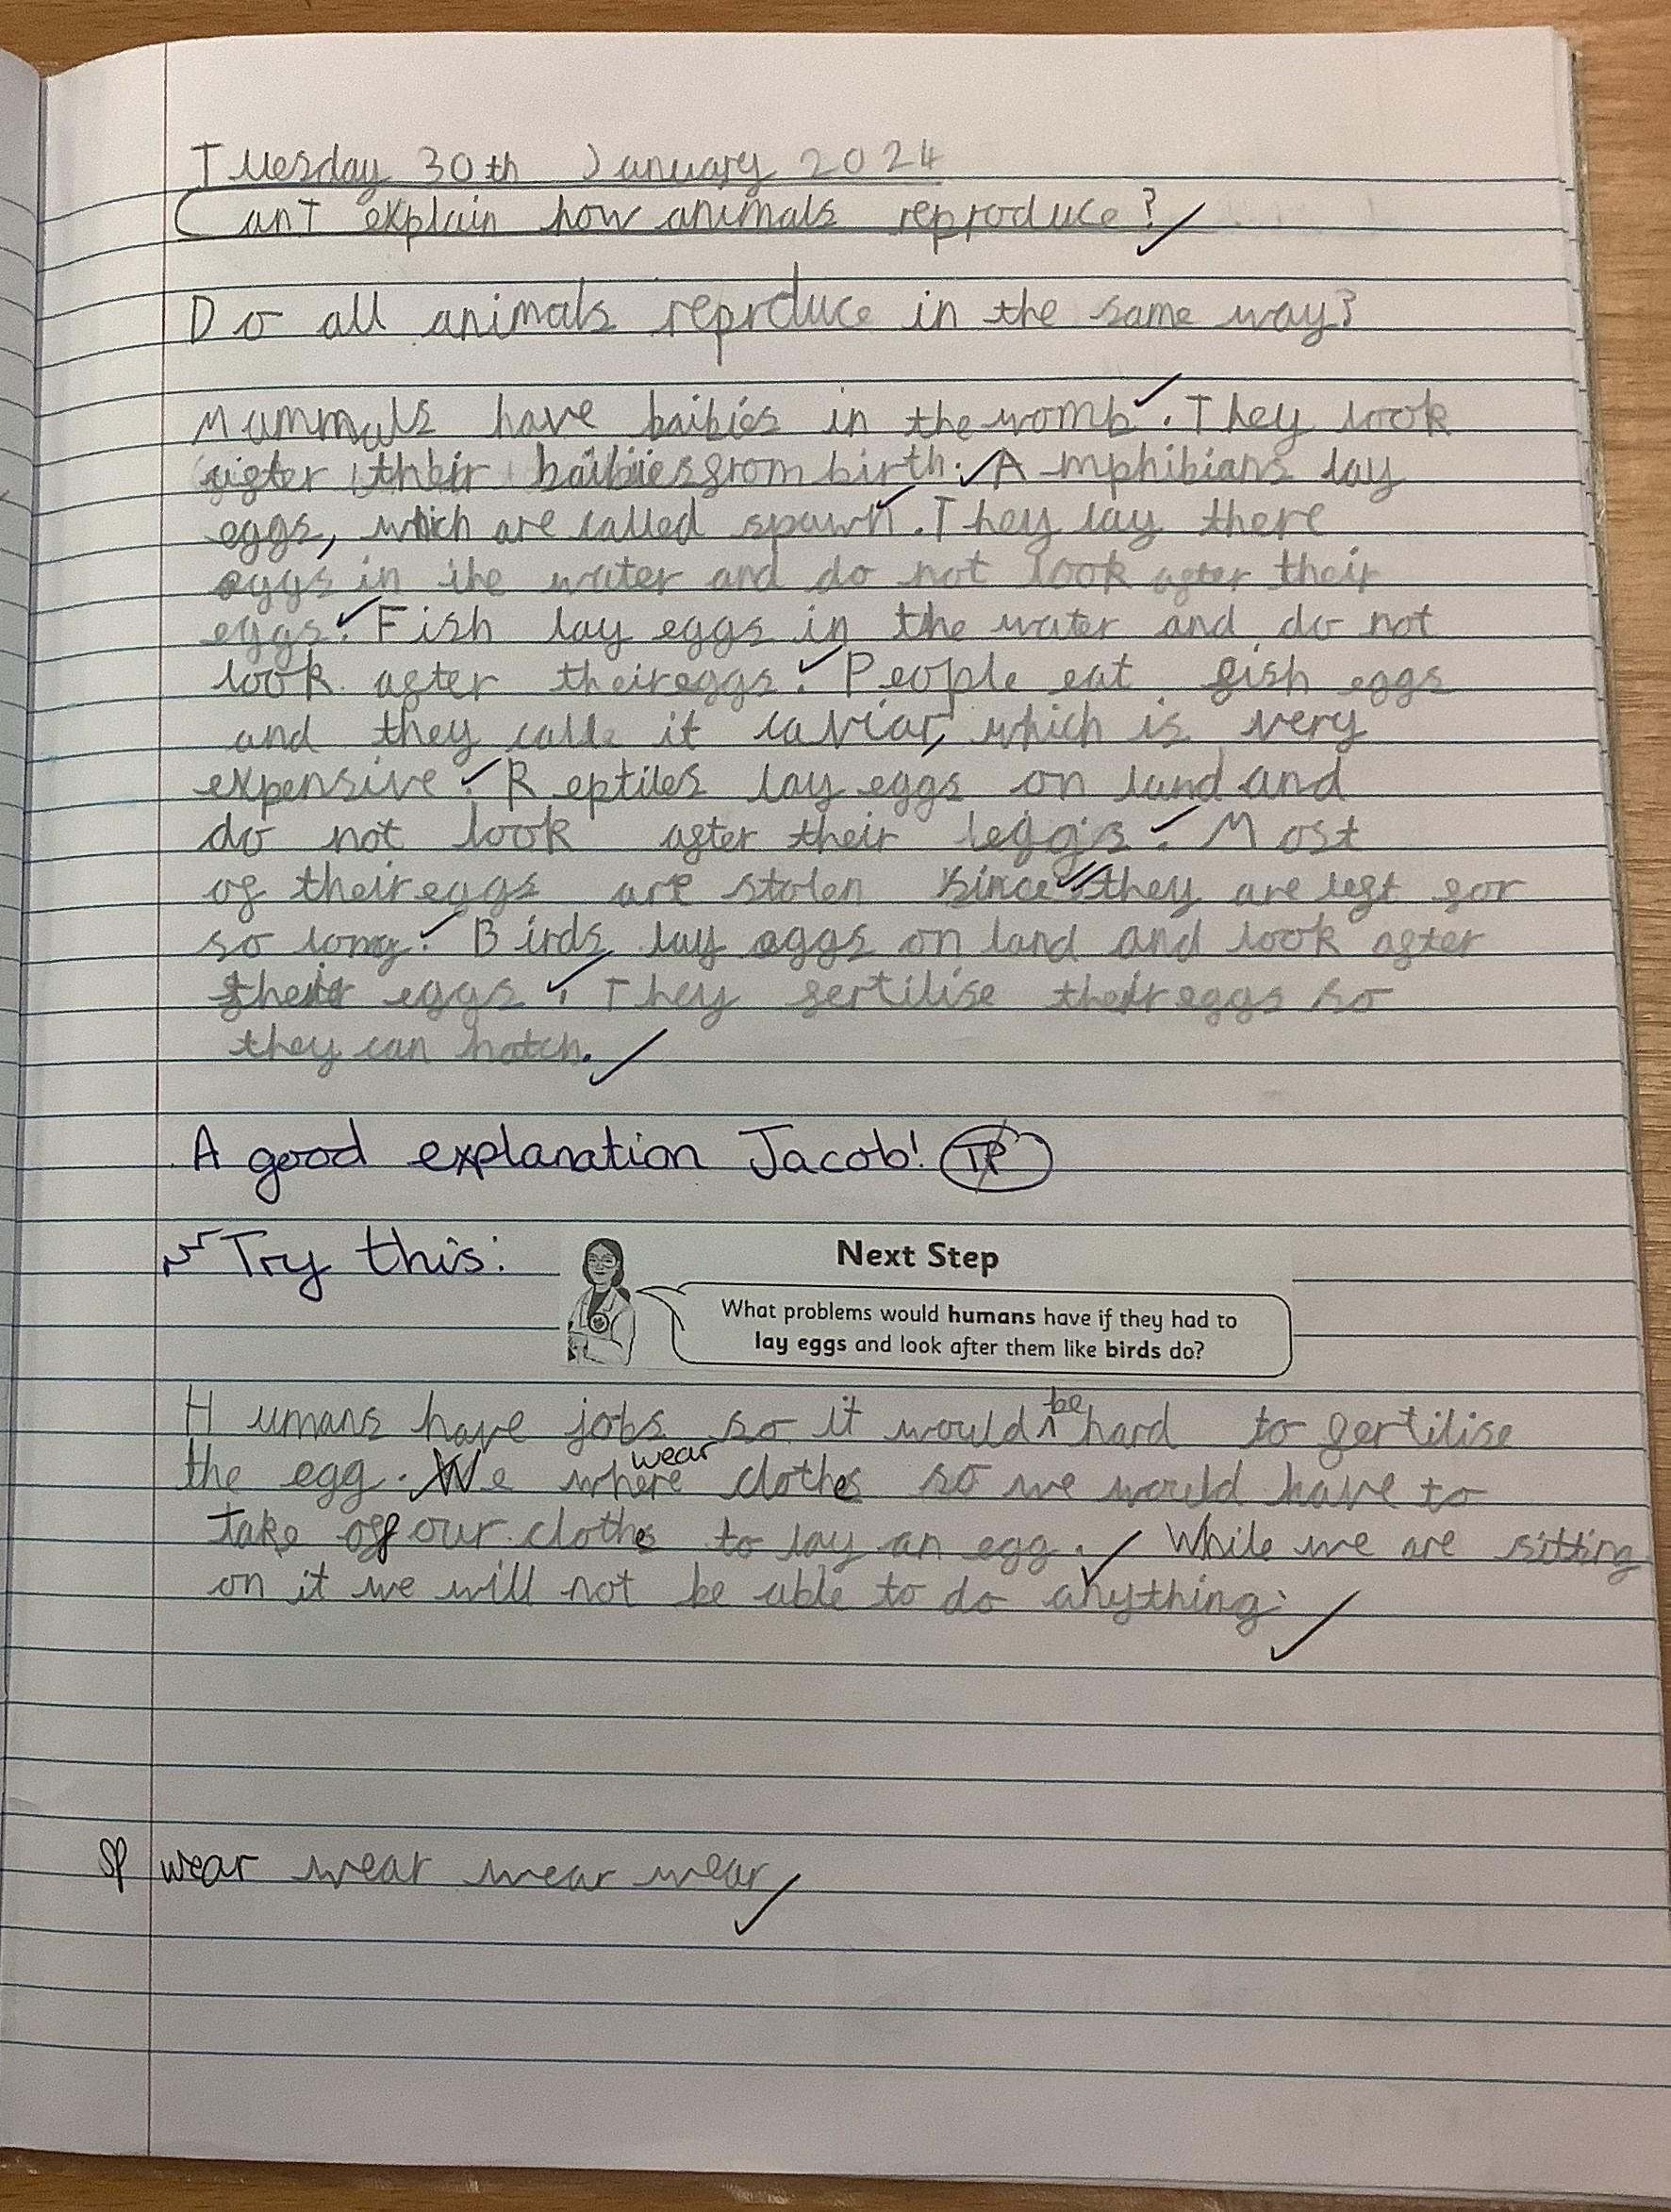 Tuesday 30th January 2024
Can I explain how animals reproduce?
Do all animals reprduce in the same way?
Mammals have baibies in the womb. They look
after their baibies from birth. Amphibians lay
eggs, which are called spawn. They lay there
eggs in the water and do not look after their
eggs. Fish lay eggs in the water and do not
look after their eggs. People eat fish eggs
and they calle it caviar, which is very
expensive. Reptiles lay eggs on land and
do not look after their eggs. Most
of their eggs are stolen since they are left for
so long. Birds lay eggs on land and look after
their eggs. They fertilise their eggs so
they can hatch.
A good explanation Jacob! TP
Try this:
Next Step
What problems would humans have if they had to
lay eggs and look after them like birds do?
Humans have jobs so it would be hard to fertilise
the egg. We where wear clothes so we would have to
take off our clothes to lay an egg. While we are sitting
on it we will not be able to do anything.
sp wear wear wear wear